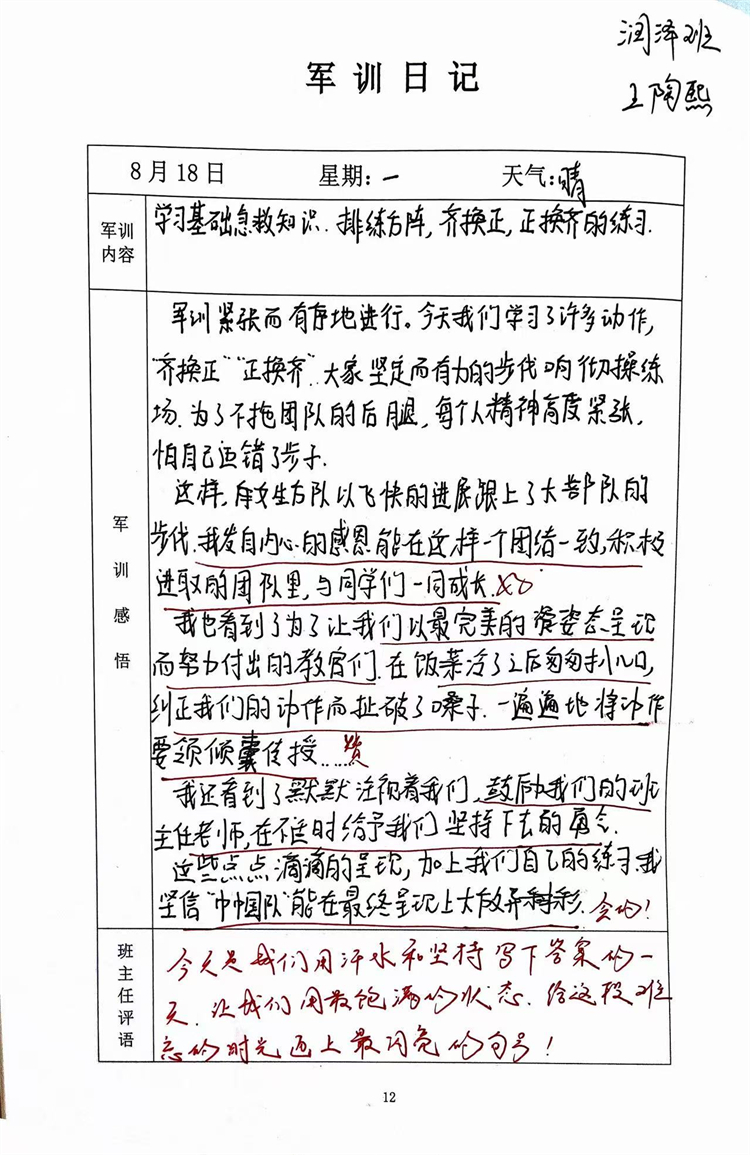 润泽班
王陶熙
军训日记
8月18日 星期:一 天气:晴
军训
内容
学习基础急救知识.排练方阵,齐换正,正换齐的练习.
军训感悟
军训紧张而有序地进行。今天我们学习了许多动作,
"齐换正""正换齐".大家坚定而有力的步伐响彻操练
场.为了不拖团队的后腿,每个人精神高度紧张,
怕自己迈错了步子.
这样,女生方队以飞快的进展跟上了大部队的
步伐.我发自内心的感恩能在这样一个团结一致,积极
进取的团队里,与同学们一同成长.
我也看到了为了让我们以最完美的姿态呈现
而努力付出的教官们.在饭菜冷了之后匆匆扒几口,
纠正我们的动作而扯破了嗓子.一遍遍地将动作
要领倾囊传授……赞
我还看到了默默注视着我们,鼓励我们的班
主任老师,在不适时给予我们坚持下去的勇气.
这些点点滴滴的呈现,加上我们自己的练习.我
坚信"巾帼队"能在最终呈现上大放异彩.会的!
班主任评语
今天是我们用汗水和坚持写下答案的一
天.让我们用最饱满的状态.给这段难
忘的时光画上最闪亮的句号!
12